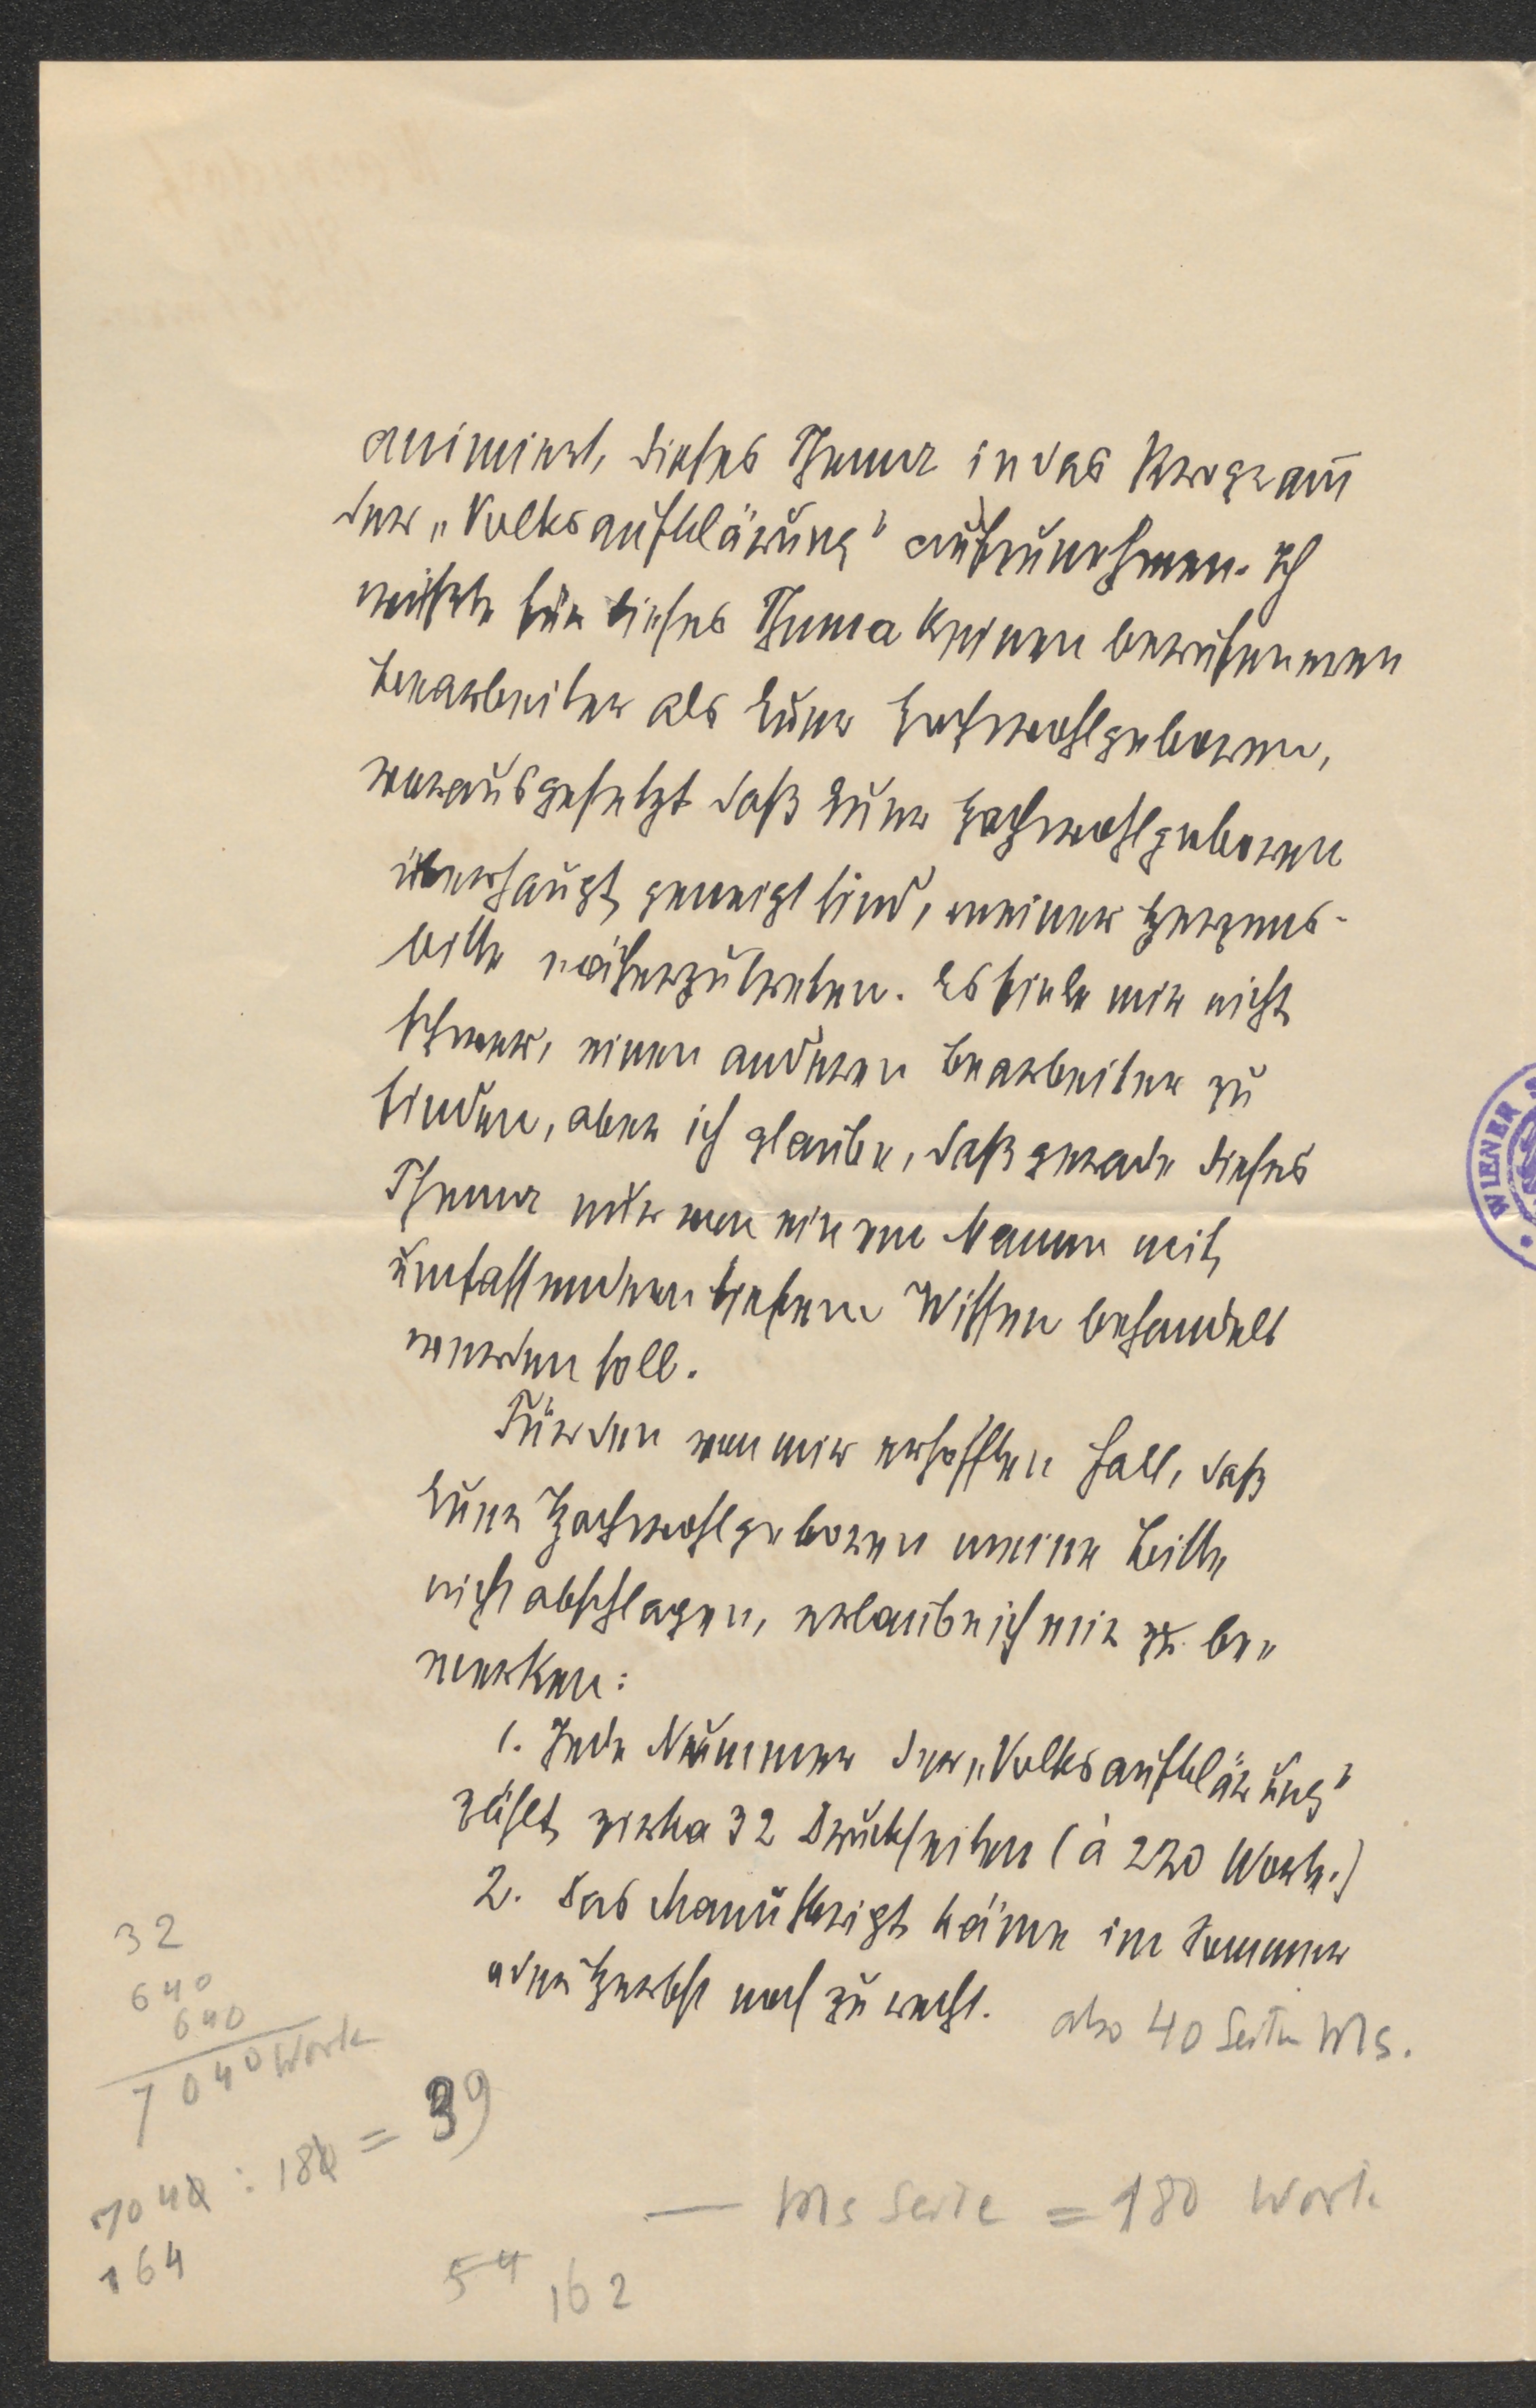 animiert, dieses Thema in das Programm
der „Volksaufklärung" aufzunehmen. Ich
wüßte für dieses Thema keinen berufeneren
Bearbeiter als Euer Hochwohlgeboren,
vorausgesetzt daß Euer Hochwohlgeboren
überhaupt geneigt sind, meiner Herzens-
bitte näherzutreten. Es fiele mir nicht
schwer, einen anderen Bearbeiter zu
finden, aber ich glaube, daß gerade dieses
Thema nur von einem Manne mit
umfassendem tiefem Wissen behandelt
werden soll.
Für den von mir erhofften Fall, daß
Euer Hochwohlgeboren meine Bitte
nicht abschlagen, erlaube ich mir zu be-
merken:
1. Jede Nummer der „Volksaufklärung"
zählt zirka 32 Druckseiten (à 220 Worte.)
2. Das Manuskript käme im Sommer
oder Herbst noch zu recht.
also 40 Seiten Ms.
32
640
640
7040 Worte
7040 : 180 = 39
164
— Ms Seite = 180 Worte
54
162
WIENER